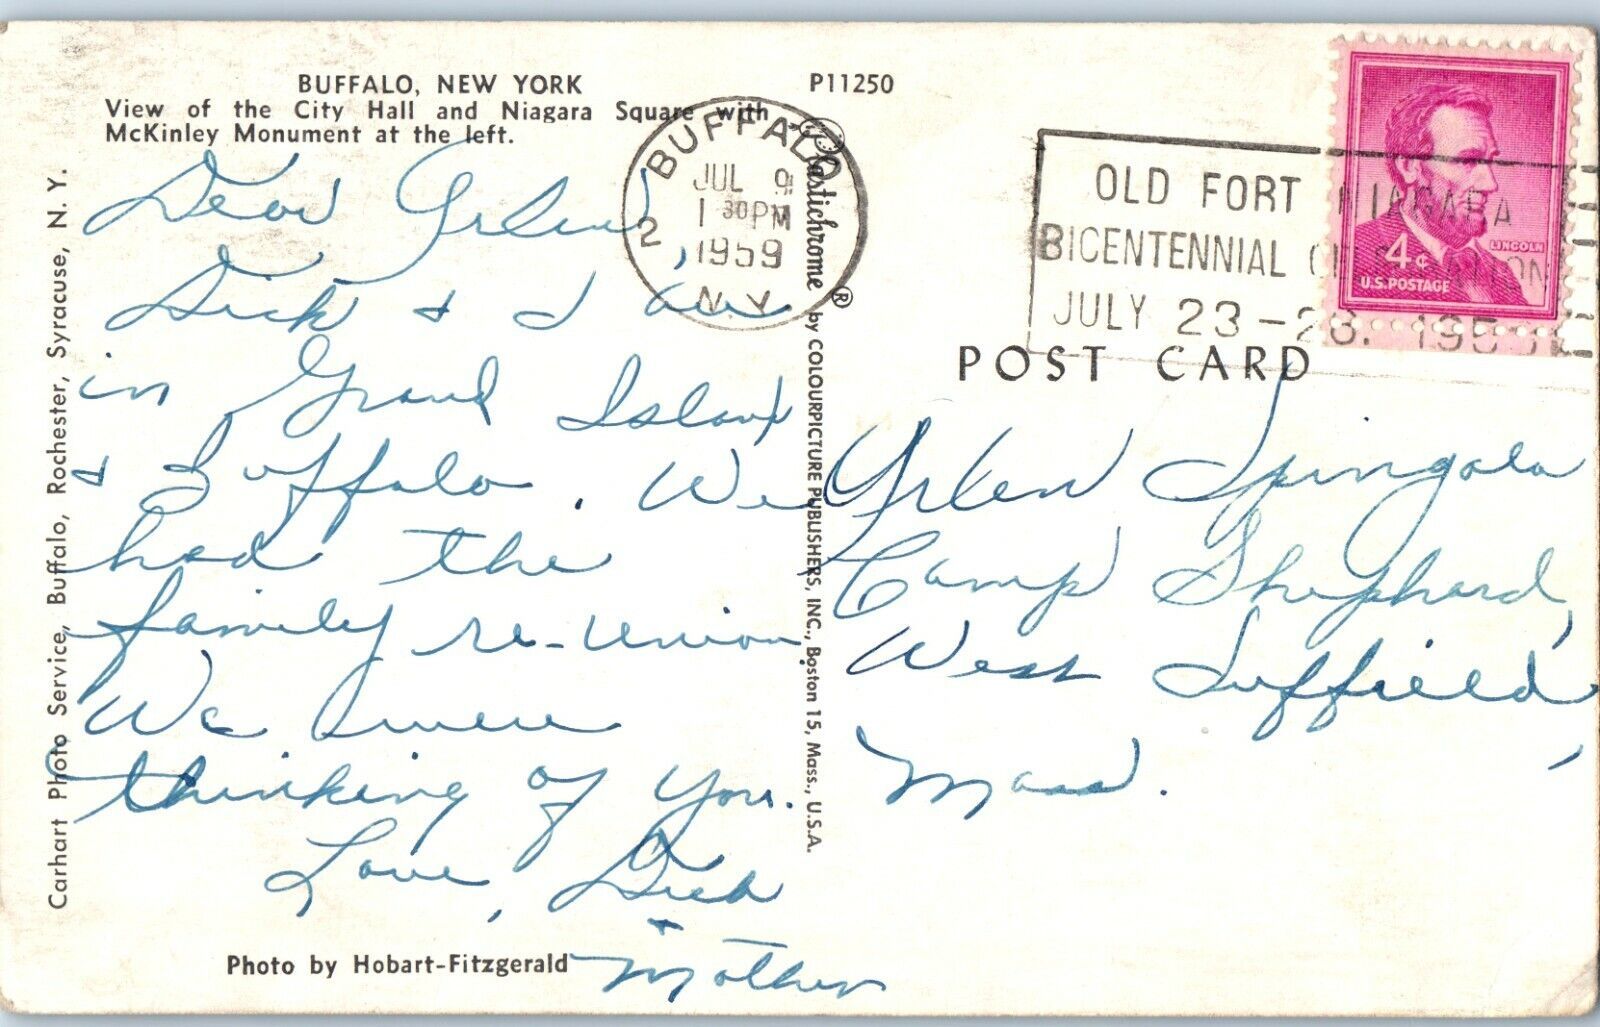 BUFFALO, NEW YORK
View of the City Hall and Niagara Square with
McKinley Monument at the left.
P11250
Carhart Photo Service, Buffalo, Rochester, Syracuse, N. Y.
Dear Arlen,
Dick & I are
in Grand Island
& Buffalo. We
had the
family re-union
We were
thinking of you.
Love, Dick
&
Mother
Photo by Hobart-Fitzgerald
Plastichrome® by COLOURPICTURE PUBLISHERS, INC., Boston 15, Mass., U.S.A.
BUFFALO
JUL 9
1 30 PM
1959
2
N.Y.
OLD FORT NIAGARA
BICENTENNIAL
JULY 23-28. 1959
LINCOLN
4¢
U.S. POSTAGE
POST CARD
Arlen Spingola
Camp Shepherd,
West Suffield,
Mass.